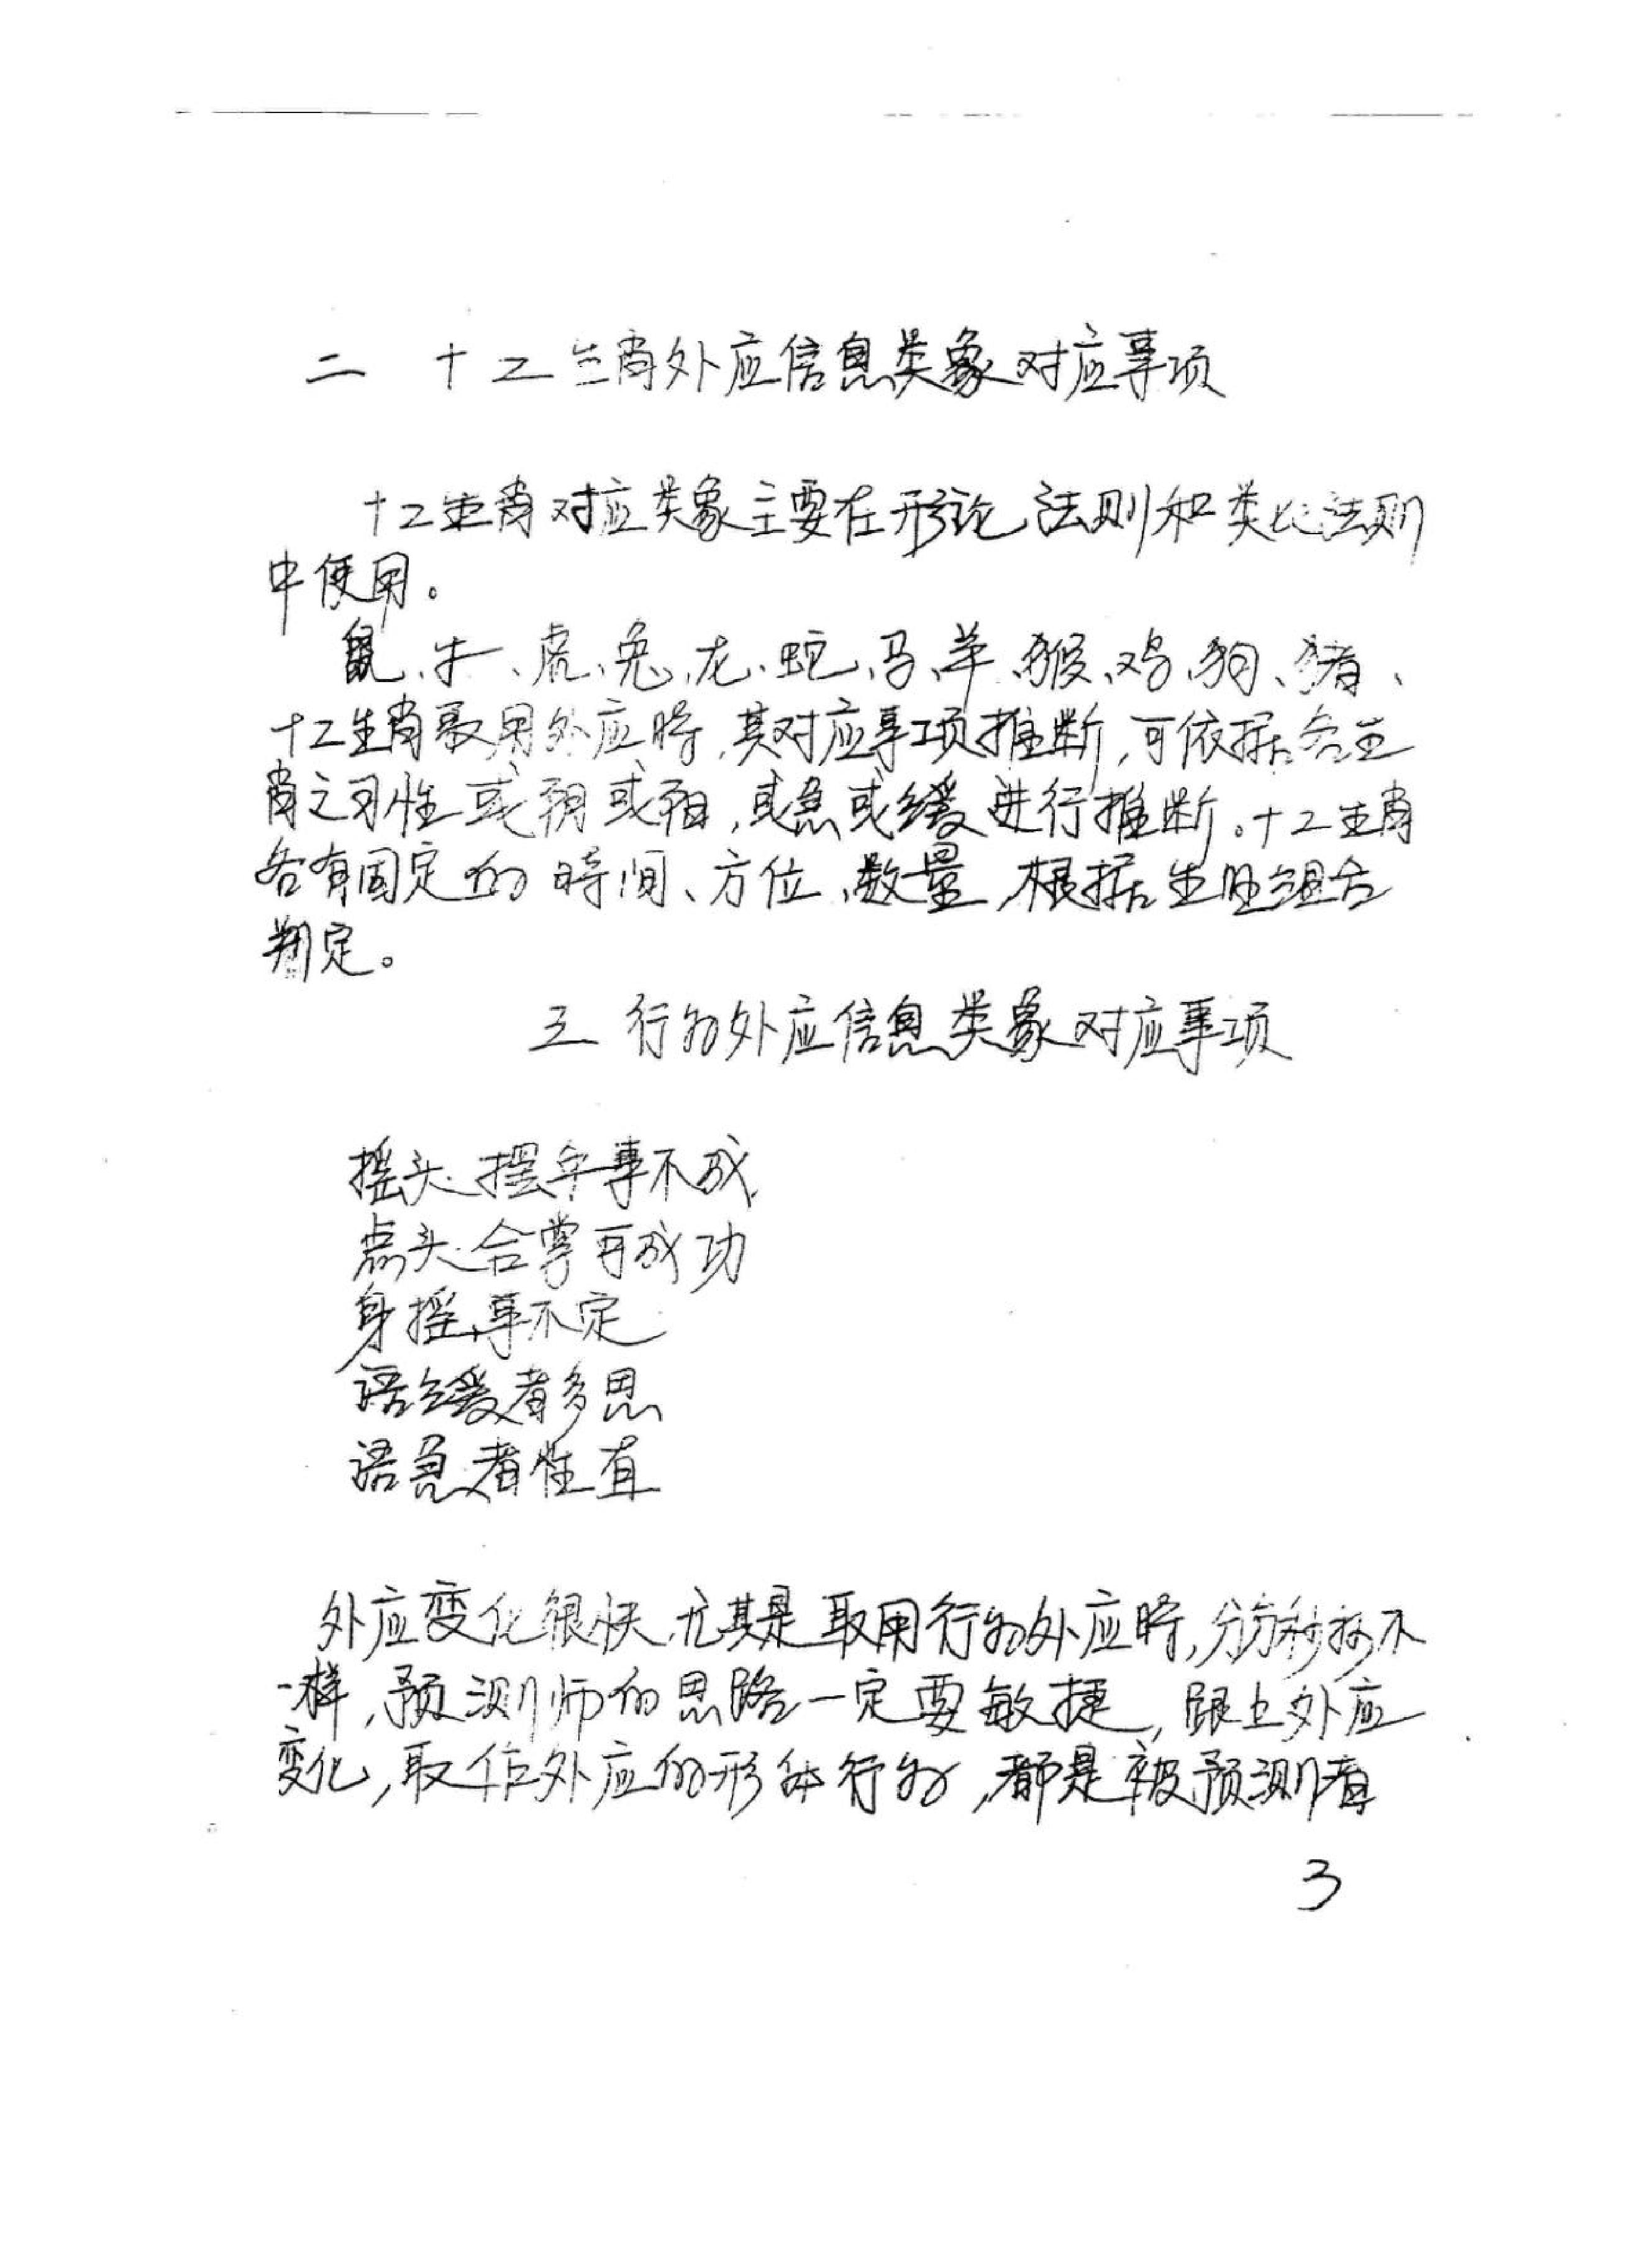 二 十二生肖外应信息类象对应事项
十二生肖对应类象主要在形论法则和类比法则
中使用。
鼠、牛、虎、兔、龙、蛇、马、羊、猴、鸡、狗、猪、
十二生肖取用外应時,其对应事项推断,可依据各生
肖之习性或刚或柔,或急或缓进行推断。十二生肖
各有固定的時间、方位、数量,根据生旺组合
判定。
三 行为外应信息类象对应事项
摇头、摆手事不成
点头、合掌可成功
身摇,事不定
语缓者多思
语急者性直
外应变化很快,尤其是取用行为外应時,分分秒秒不
一样,预测师的思路一定要敏捷,跟上外应
变化,取作外应的形体行为,都是被预测者
3